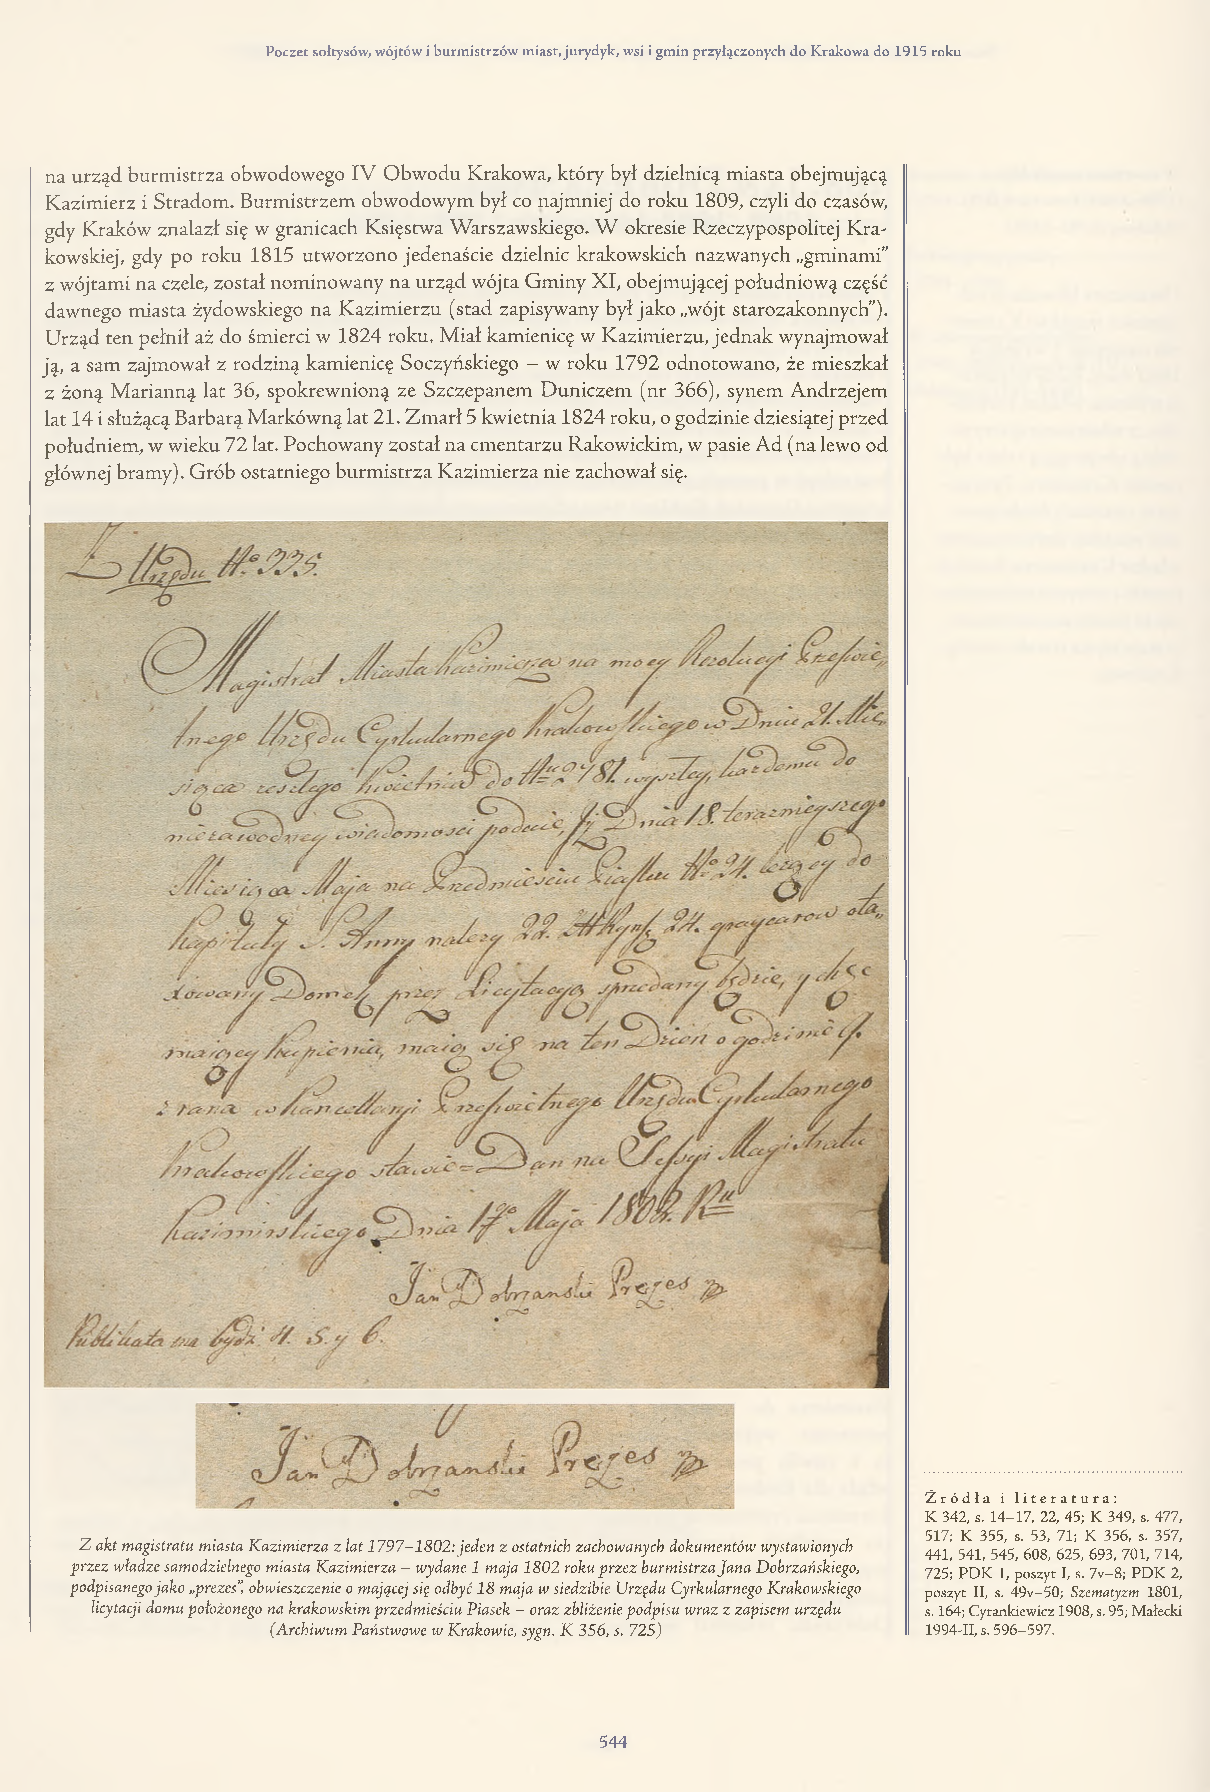 Poczet sołtysów, wójtów i burmistrzów miast, jurydyk, wsi i gmin przyłączonych do Krakowa do 1915 roku
na urząd burmistrza obwodowego IV Obwodu Krakowa, który był dzielnicą miasta obejmującą
Kazimierz i Stradom. Burmistrzem obwodowym był co najmniej do roku 1809, czyli do czasów,
gdy Kraków znalazł się w granicach Księstwa Warszawskiego. W okresie Rzeczypospolitej Kra-
kowskiej, gdy po roku 1815 utworzono jedenaście dzielnic krakowskich nazwanych „gminami”
z wójtami na czele, został nominowany na urząd wójta Gminy XI, obejmującej południową część
dawnego miasta żydowskiego na Kazimierzu (stad zapisywany był jako „wójt starozakonnych”).
Urząd ten pełnił aż do śmierci w 1824 roku. Miał kamienicę w Kazimierzu, jednak wynajmował
ją, a sam zajmował z rodziną kamienicę Soczyńskiego – w roku 1792 odnotowano, że mieszkał
z żoną Marianną lat 36, spokrewnioną ze Szczepanem Duniczem (nr 366), synem Andrzejem
lat 14 i służącą Barbarą Markówną lat 21. Zmarł 5 kwietnia 1824 roku, o godzinie dziesiątej przed
południem, w wieku 72 lat. Pochowany został na cmentarzu Rakowickim, w pasie Ad (na lewo od
głównej bramy). Grób ostatniego burmistrza Kazimierza nie zachował się.
Z Urzędu No 335.
Magistrat Miasta Kazimierza na mocy Rezolucyi Prześwie„
tnego Urzędu Cyrkularnego Krakowskiego w Dniu 21. Mie„
siąca zeszłego Kwietnia do 2481. wyszłey, każdemu do
niezawodney wiadomosci podaie, Jż Dnia 18. terazniejszego
Miesiąca Maja na Przedmiesciu Piasku No 24. leżący do
Kapituły S. Anny należy 22. 24. graycarow ota„
xowany Domek przez Licytacyą sprzedany będzie, y chęć
maiący kupienia, maią się na ten Dzień o godzinie 9.
z rana w Kancellaryi Prześwietnego Urzędu Cyrkularnego
Krakowskiego stawić = Dan na Sessyi Magistratu
Kazimirskiego Dnia 1go Maja 1802. Ru
Jan Dobrzanski Prezes
Publikata ma bydź 4. 5. y 6.
Jan Dobrzanski Prezes
Z akt magistratu miasta Kazimierza z lat 1797–1802: jeden z ostatnich zachowanych dokumentów wystawionych
przez władze samodzielnego miasta Kazimierza – wydane 1 maja 1802 roku przez burmistrza Jana Dobrzańskiego,
podpisanego jako „prezes”, obwieszczenie o mającej się odbyć 18 maja w siedzibie Urzędu Cyrkularnego Krakowskiego
licytacji domu położonego na krakowskim przedmieściu Piasek – oraz zbliżenie podpisu wraz z zapisem urzędu
(Archiwum Państwowe w Krakowie, sygn. K 356, s. 725)
Źródła i literatura:
K 342, s. 14–17, 22, 45; K 349, s. 477,
517; K 355, s. 53, 71; K 356, s. 357,
441, 541, 545, 608, 625, 693, 701, 714,
725; PDK 1, poszyt I, s. 7v–8; PDK 2,
poszyt II, s. 49v–50; Szematyzm 1801,
s. 164; Cyrankiewicz 1908, s. 95; Małecki
1994-II, s. 596–597.
544